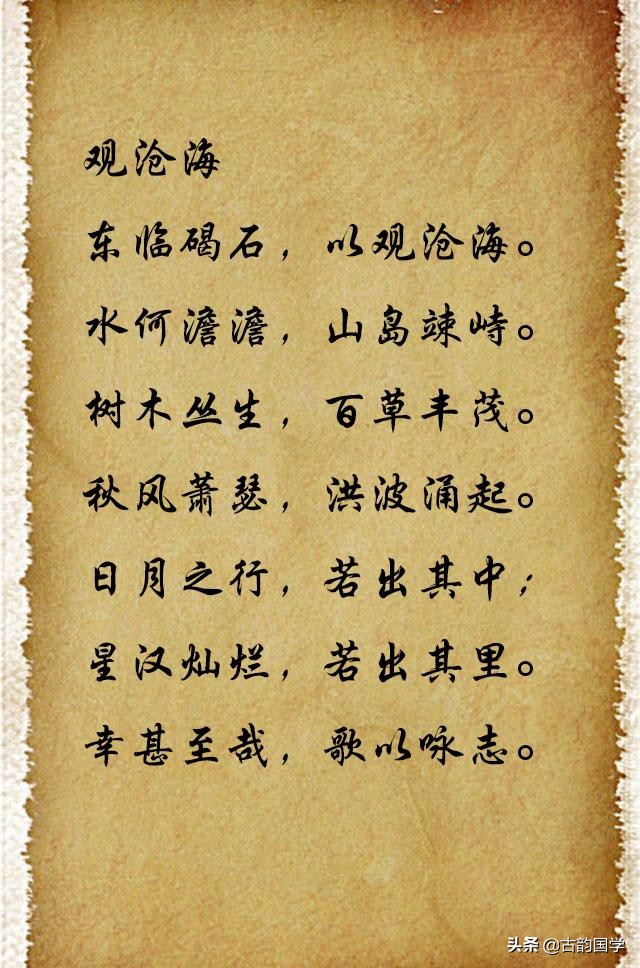 观沧海
东临碣石，以观沧海。
水何澹澹，山岛竦峙。
树木丛生，百草丰茂。
秋风萧瑟，洪波涌起。
日月之行，若出其中；
星汉灿烂，若出其里。
幸甚至哉，歌以咏志。
头条 @古韵国学